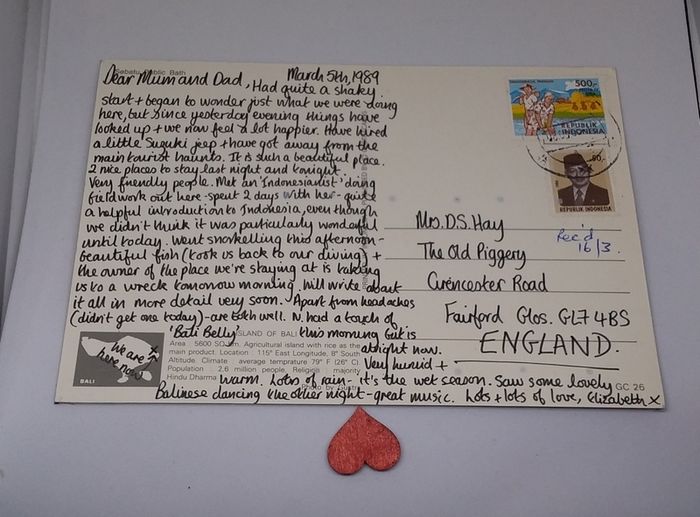 Sebatu Public Bath
March 5th, 1989
Dear Mum and Dad, Had quite a shaky
start + began to wonder just what we were doing
here, but since yesterday evening things have
looked up + we now feel a lot happier. Have hired
a little Suzuki jeep + have got away from the
main tourist haunts. It is such a beautiful place.
2 nice places to stay last night and tonight.
Very friendly people. Met an 'Indonesianist' doing
fieldwork out here - spent 2 days with her - quite
a helpful introduction to Indonesia, even though
we didn't think it was particularly wonderful
until today. Went snorkelling this afternoon -
beautiful fish (took us back to our diving) +
the owner of the place we're staying at is taking
us to a wreck tomorrow morning. Will write about
it all in more detail very soon. Apart from headaches
(didn't get one today) - are both well. N. had a touch of
'Bali Belly' this morning but is
alright now.
Very humid +
warm. Lots of rain - it's the wet season. Saw some lovely
Balinese dancing the other night - great music. Lots + lots of love, Elizabeth x
ISLAND OF BALI
Area : 5600 SQ.km. Agricultural island with rice as the
main product. Location : 115° East Longitude, 8° South
Altitude. Climate : average temprature 79° F (26° C).
Population : 2.6 million people. Religion : majority
Hindu Dharma
We are
here now
BALI
GC 26
500,-
REPUBLIK
INDONESIA
REPUBLIK INDONESIA
Mrs. D.S. Hay
The Old Piggery
Cirencester Road
Fairford Glos. GL7 4BS
ENGLAND.
Rec'd
16/3.